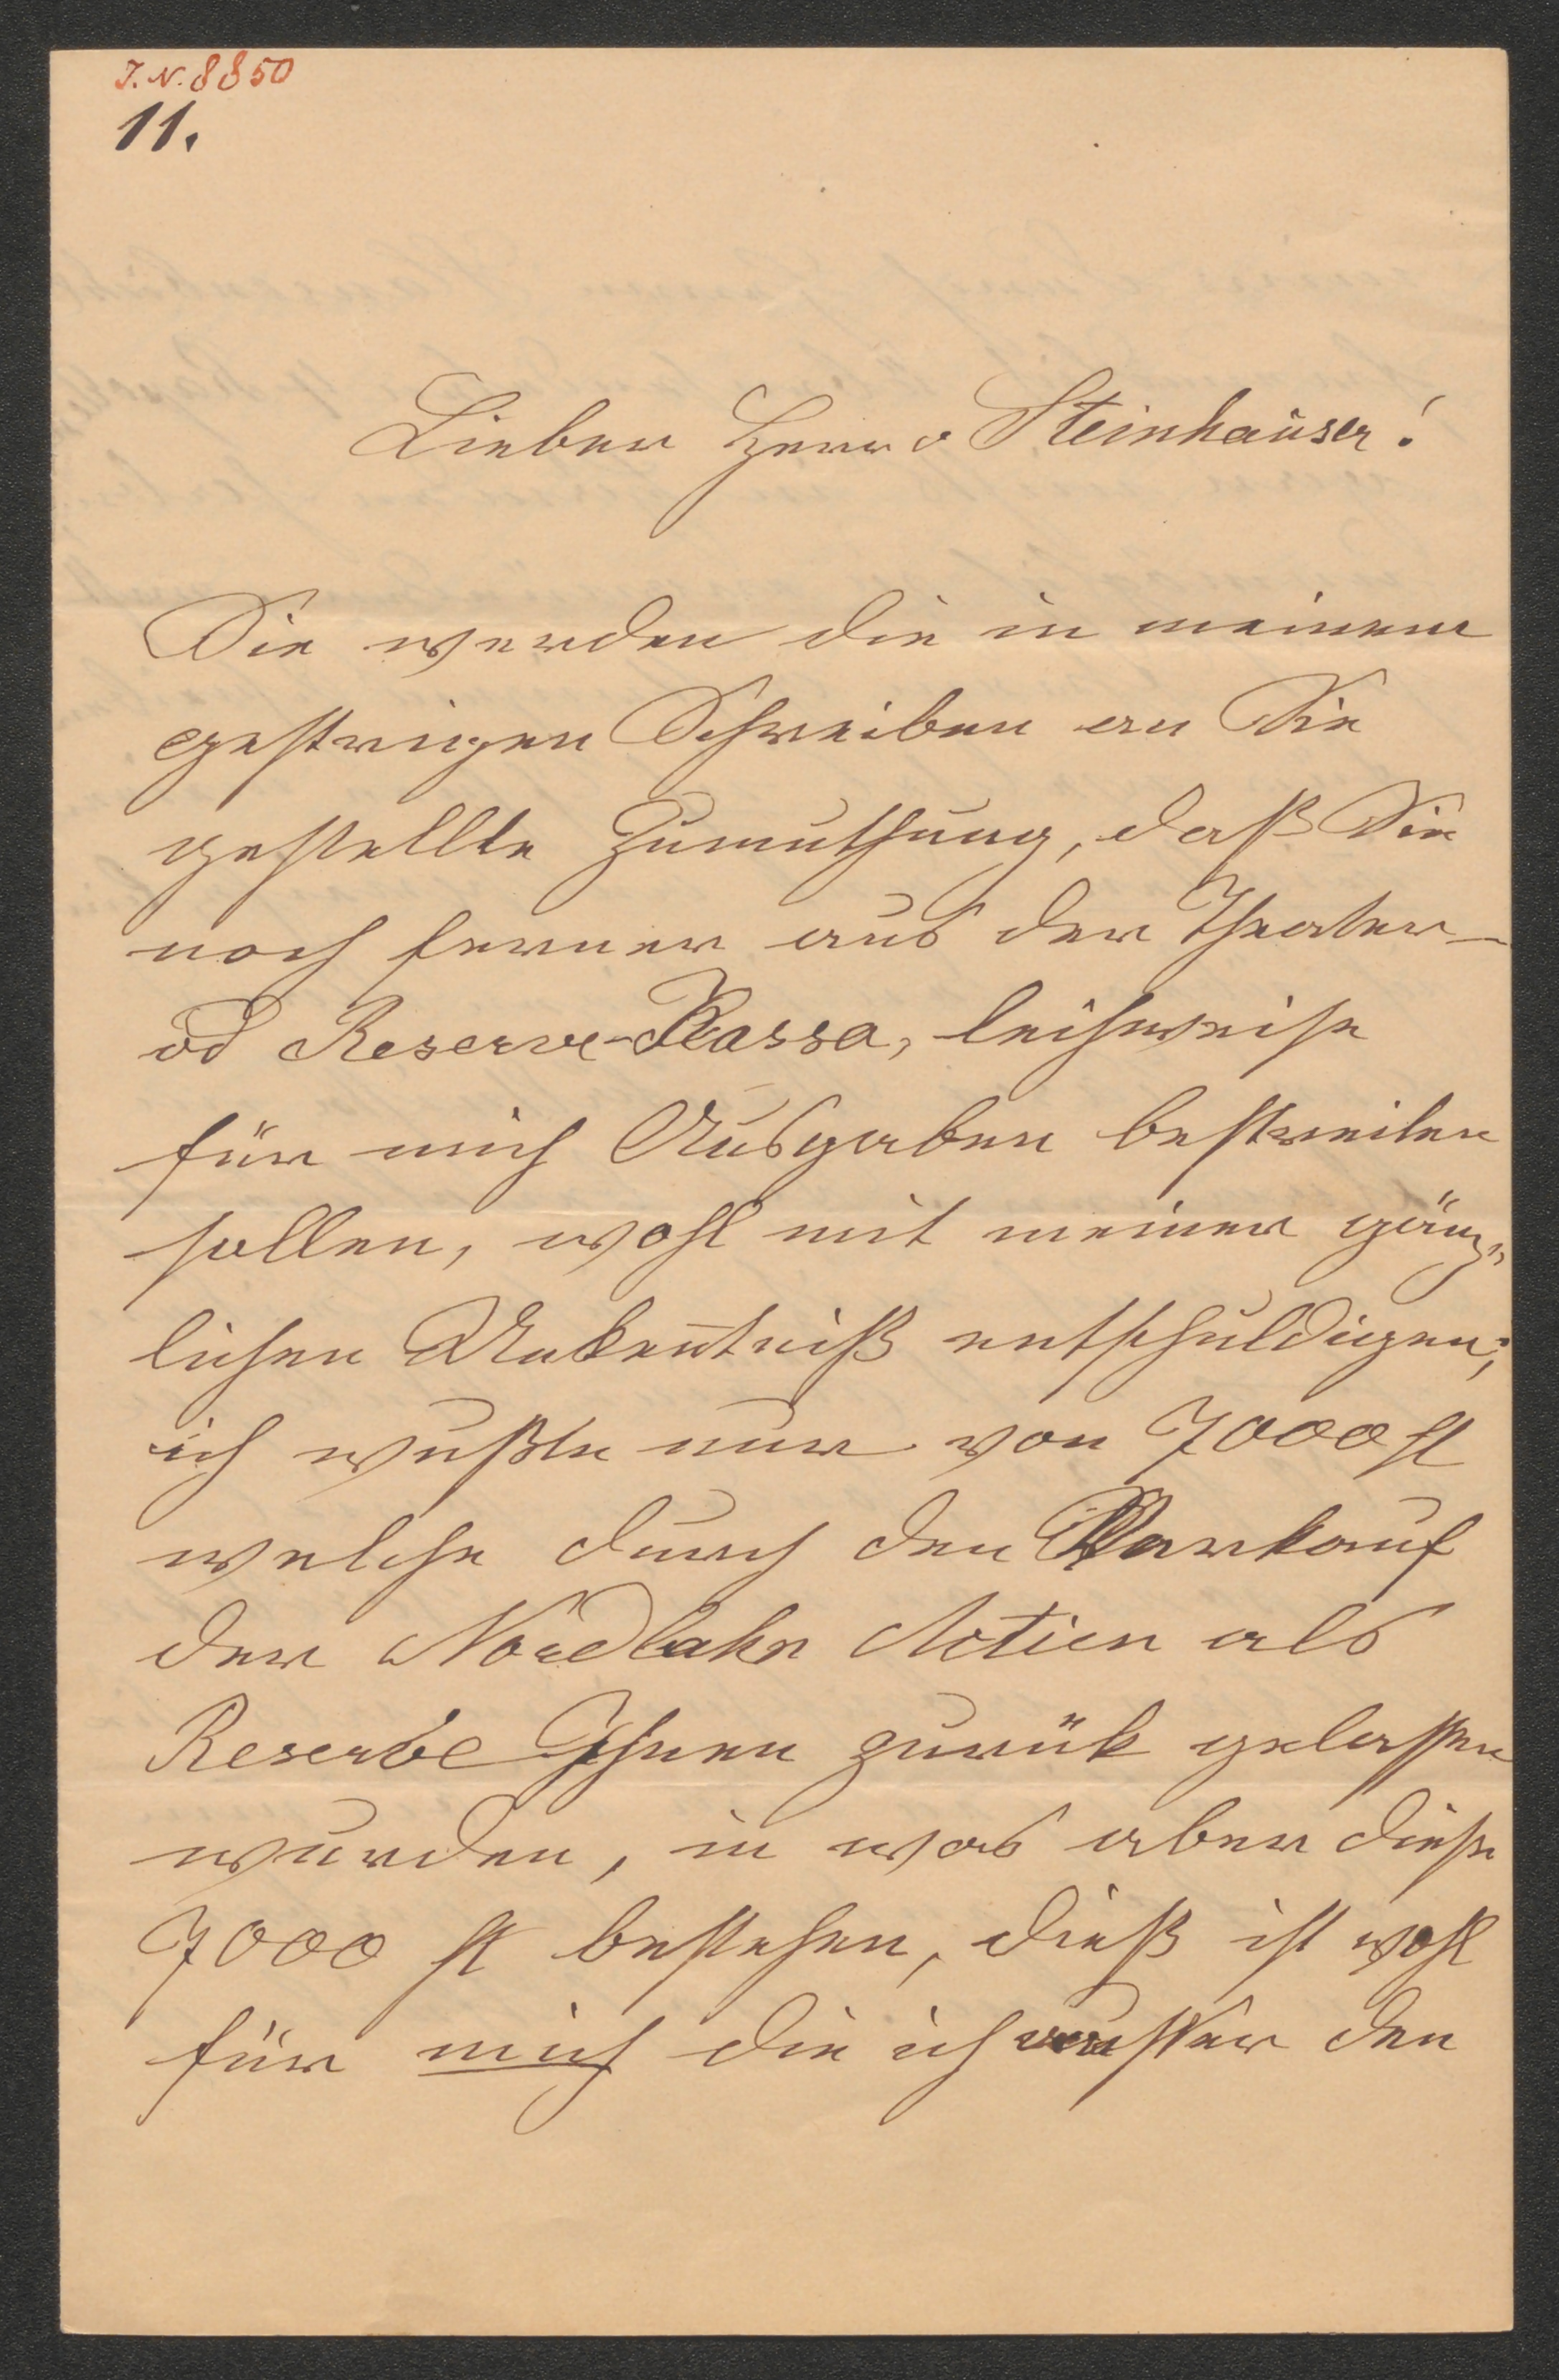 J. N. 8850
11.
Lieber Herr v Steinhauser!
Sie werden die in meinem
gestrigen Schreiben an Sie
gestellte Zumuthung, daß Sie
noch ferner aus der Theater-
od Reserve-Kassa, leihweise
für mich Ausgaben bestreiten
sollen, wohl mit meiner gänz-
lichen Unkentniß entschuldigen;
ich wußte nur von 7000 fl
welche durch den Verkauf
der Nordbahn Actien als
Reserve Ihnen zurük gelassen
wurden, in was aber diese
7000 fl bestehen, dieß ist wohl
für mich die ich ausser den